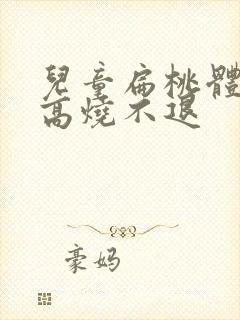 兒童扁桃體
高燒不退
豪妈